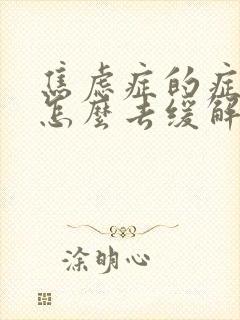 焦虑症的症
怎麼去缓解
涂明心